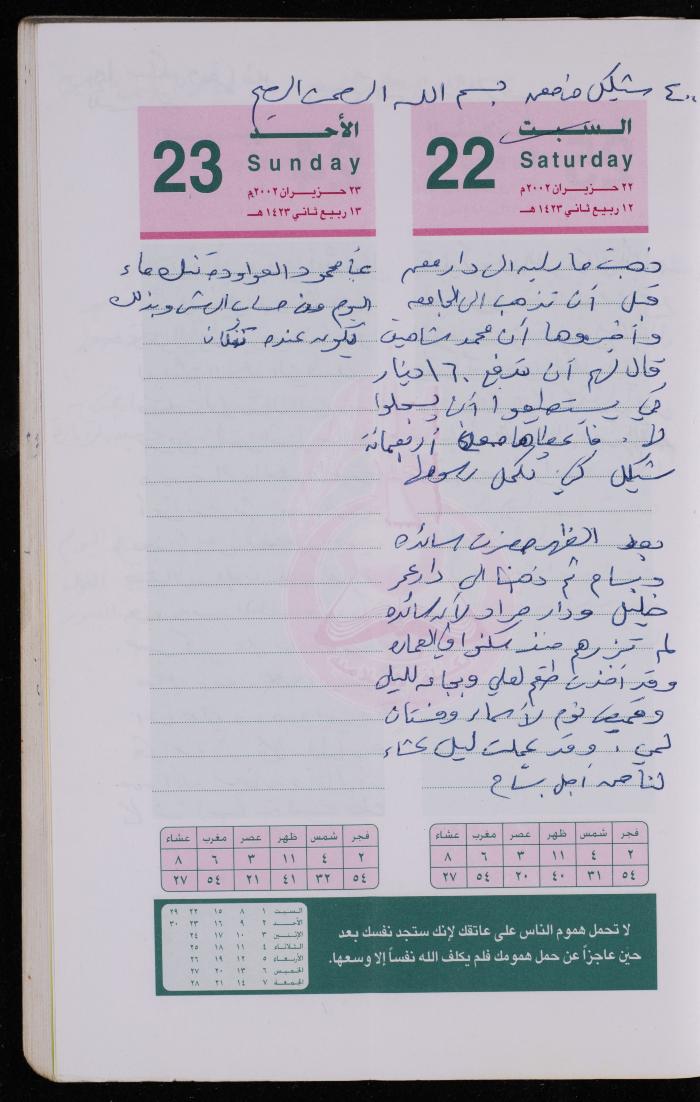 ٤٠٠ شيكل جامعة بسم الله الرحمن الرحيم
السبت
22
Saturday
٢٢ حــزيــران ٢٠٠٢م
١٢ ربيع ثاني ١٤٢٣ هـ
ذهبت مارليه الى دار
قبل أن تذهب الى الجامعه
وأخبروها أن محمد شاهين
قال لهم أن تدفع ١٦٠ دينار
كي يستطيعوا أن يسجلوا
لا. فأعطاها أربعمائة
شيكل كي تكمل رسومها
بعد الظهر حضرت سائده
وبسام ثم ذهبنا الى دار عمر
خليل ودار مراد لأن سائده
لم تزرهم منذ سكنوا في العماره
وقد أخذت طقم لعلي وبجامه لليل
وقميص نوم لأسماء وفستان
لمي، وقد عملت ليل عشاء
لنا من أجل بسام
الأحــد
23
Sunday
٢٣ حــزيــران ٢٠٠٢م
١٣ ربيع ثاني ١٤٢٣ هـ
محمود العواوده تنك ماء
اليوم من حساب الرش وبذلك
يكون عنده تنكان
فجر شمس ظهر عصر مغرب عشاء
٢ ٤ ١١ ٣ ٦ ٨
٥٤ ٣١ ٤٠ ٢٠ ٥٤ ٢٧
فجر شمس ظهر عصر مغرب عشاء
٢ ٤ ١١ ٣ ٦ ٨
٥٤ ٣٢ ٤١ ٢١ ٥٤ ٢٧
لا تحمل هموم الناس على عاتقك لإنك ستجد نفسك بعد
حين عاجزاً عن حمل همومك فلم يكلف الله نفساً إلا وسعها.
السبت ١ ٨ ١٥ ٢٢ ٢٩
الأحد ٢ ٩ ١٦ ٢٣ ٣٠
الإثنين ٣ ١٠ ١٧ ٢٤
الثلاثاء ٤ ١١ ١٨ ٢٥
الأربعاء ٥ ١٢ ١٩ ٢٦
الخميس ٦ ١٣ ٢٠ ٢٧
الجمعة ٧ ١٤ ٢١ ٢٨